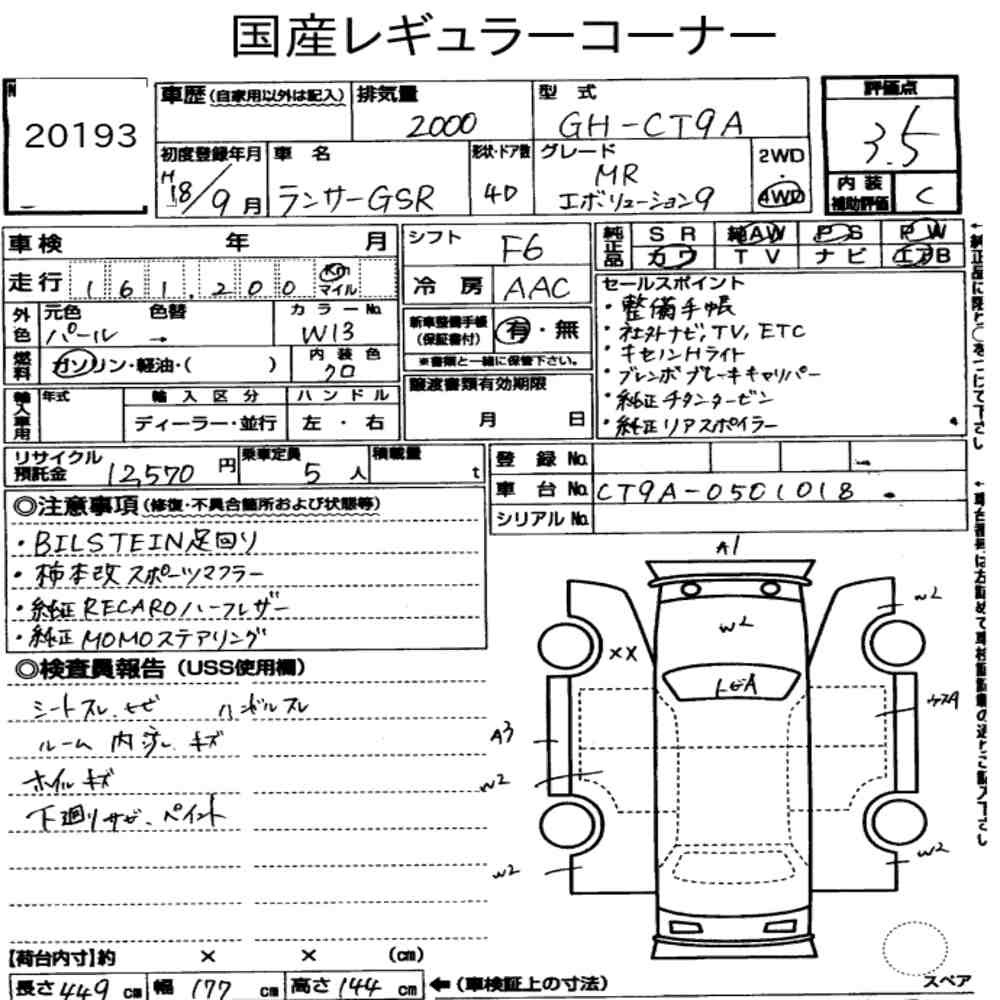 国産レギュラーコーナー
20193
車歴(自家用以外は記入) 排気量 2000 型式 GH-CT9A
評価点 3.5
内装補助評価 C
初度登録年月 H18/9月 車名 ランサーGSR 形状・ドア数 4D グレード MR エボリューション9 2WD 4WD
車検 年 月
走行 161,200 Km マイル
シフト F6
冷房 AAC
純正品 SR 純AW PS PW
カワ TV ナビ エアB
外色 元色 パール → 色替 カラーNo. W13
燃料 ガソリン・軽油・( ) 内装色 クロ
新車整備手帳(保証書付) 有・無
※書類と一緒に保管下さい。
輸入車用 年式 輸入区分 ディーラー・並行 ハンドル 左・右
譲渡書類有効期限
月 日
セールスポイント
・整備手帳
・社外ナビ,TV,ETC
・キセノンHライト
・ブレンボブレーキキャリパー
・純正チタンタービン
・純正リアスポイラー
リサイクル預託金 12,570円 乗車定員 5人 積載量 t
登録No.
車台No. CT9A-0501018
シリアルNo.
◎注意事項(修復・不具合箇所および状態等)
・BILSTEIN足回り
・柿本改スポーツマフラー
・純正RECAROハーフレザー
・純正MOMOステアリング
◎検査員報告(USS使用欄)
シートスレ、サビ ハンドルスレ
ルーム内汚し、キズ
ホイルキズ
下廻りサビ、ペイント
A1
W2
W2
XX
トビA
A3
W2
W2
W2
スペア
【荷台内寸】約 × × (cm)
長さ449cm 幅177cm 高さ144cm ←(車検証上の寸法)